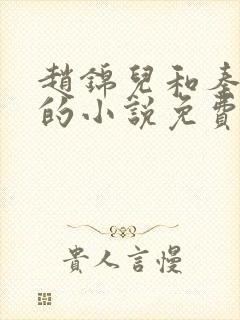 趙錦兒和秦
的小說免費
貴人言慢